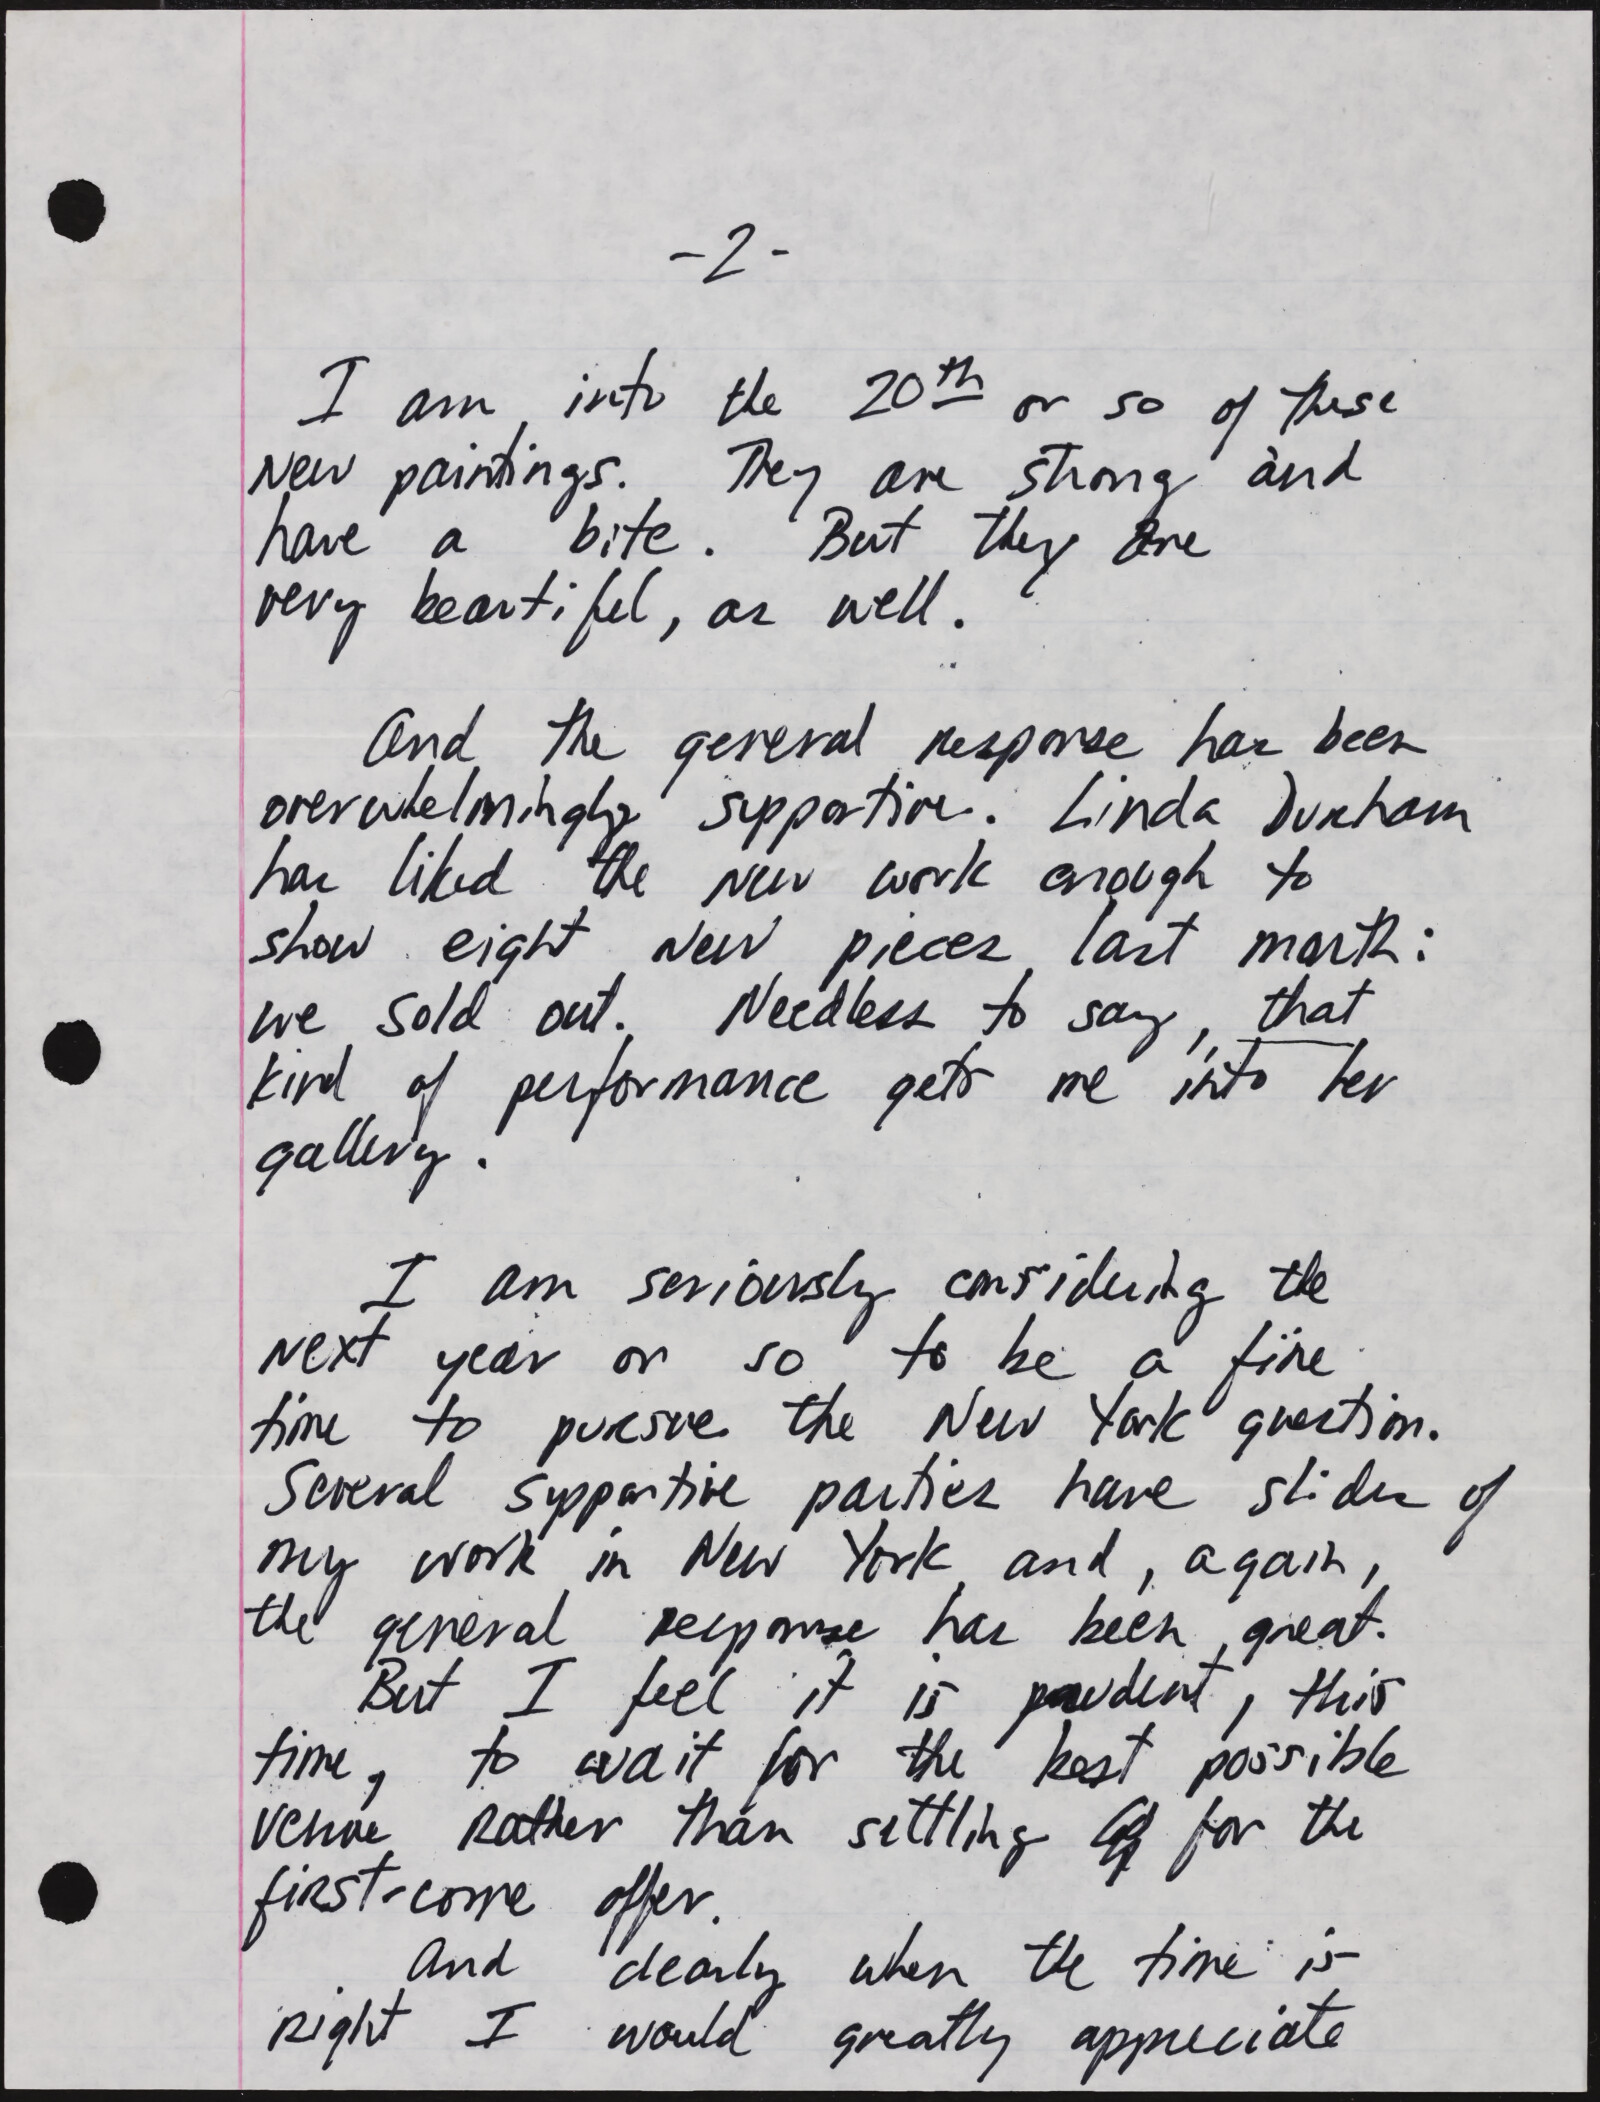 -2-
I am into the 20th or so of these
new paintings. They are strong and
have a bite. But they are
very beautiful, as well.
And the general response has been
overwhelmingly supportive. Linda Durham
has liked the new work enough to
show eight new pieces last month:
we sold out. Needless to say, that
kind of performance gets me into her
gallery.
I am seriously considering the
next year or so to be a fine
time to pursue the New York question.
Several supportive parties have slides of
my work in New York and, again,
the general response has been great.
But I feel it is prudent, this
time, to wait for the best possible
venue rather than settling for the
first-come offer.
And clearly when the time is
right I would greatly appreciate